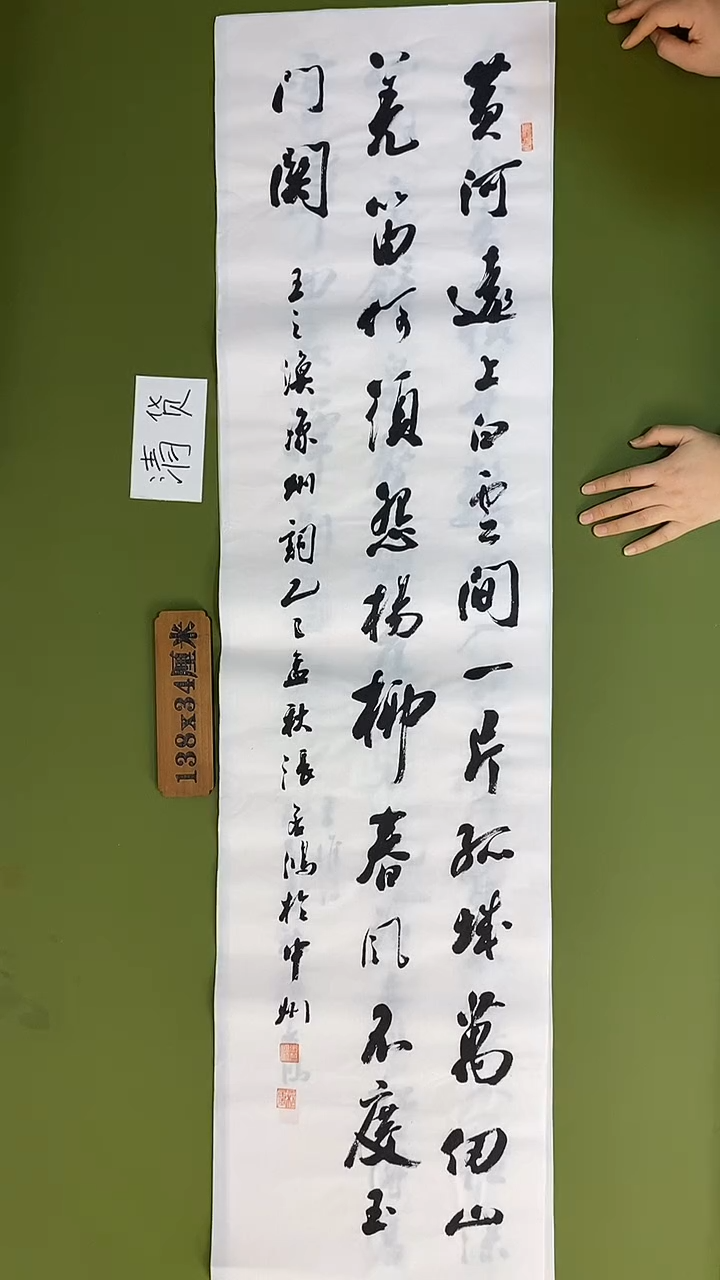 黄河遠上白雲间一片孤城萬仞山
羌笛何須怨楊柳春風不度玉
门関
王之渙凉州詞乙巳孟秋張若鴻於中州
清货
138x34厘米